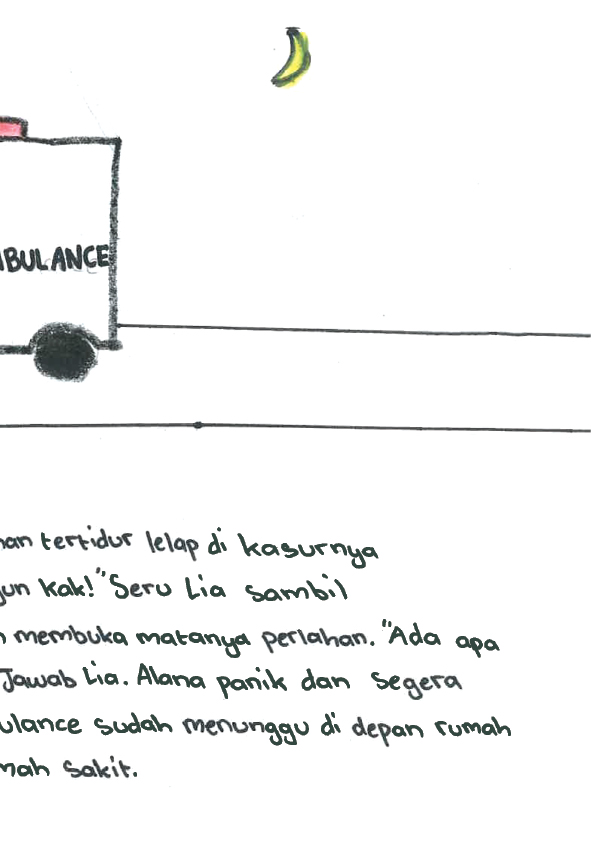 BULANCE
tertidur lelap di kasurnya
kak!" Seru Lia sambil
membuka matanya perlahan. "Ada apa
Jawab Lia. Alana panik dan segera
ulance sudah menunggu di depan rumah
mah sakit.